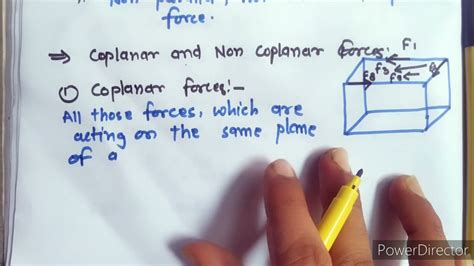 force.
⇒ Coplanar and Non Coplanar forces:
① Coplanar forces:-
All those forces, which are
acting on the same plane
of a
F1
F3
PowerDirector